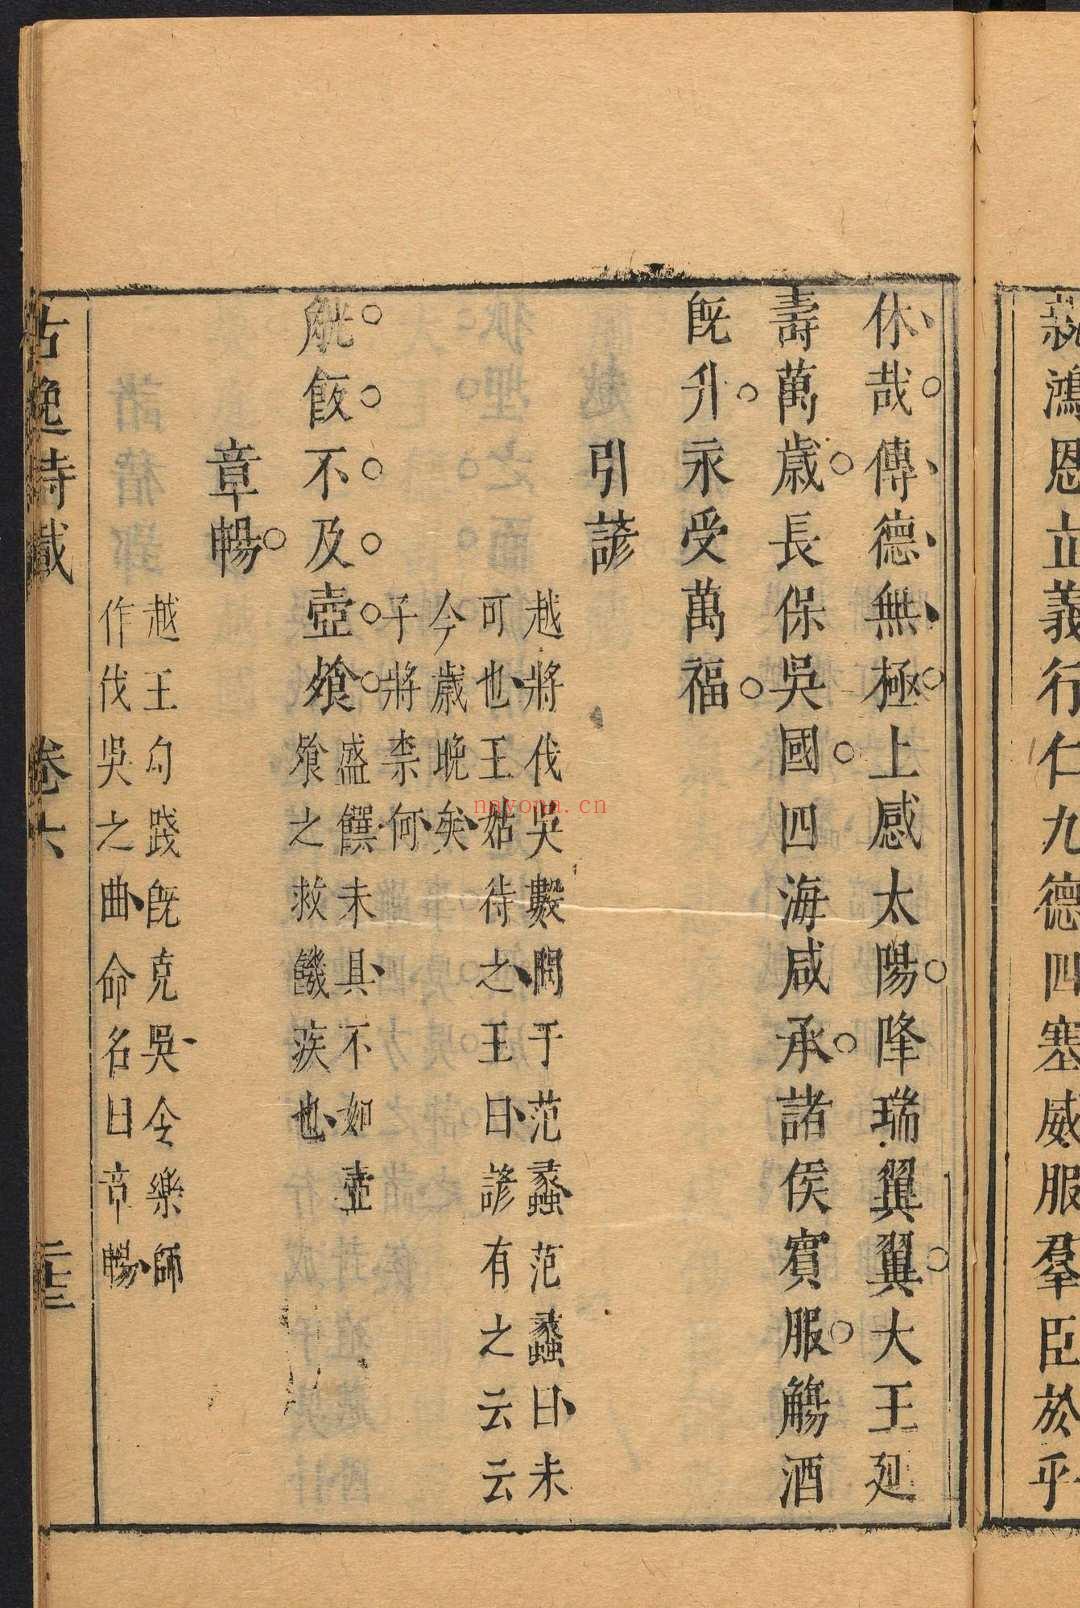 親鴻恩立義行仁九德四塞威服羣臣於乎
休哉傳德無極上感太陽降瑞翼翼大王延
壽萬歲長保吳國四海咸承諸侯賓服觴酒
旣升永受萬福
引諺
越將伐吳數問于范蠡范蠡曰未
可也王姑待之王曰諺有之云云
今歲晚矣
子將柰何
觥飯不及壺飧
盛饌未具不如壺
飧之救饑疾也
章暢
越王勾踐旣克吳令樂師
作伐吳之曲命名曰章暢
古逸詩載
卷六
二十三
nayona.cn